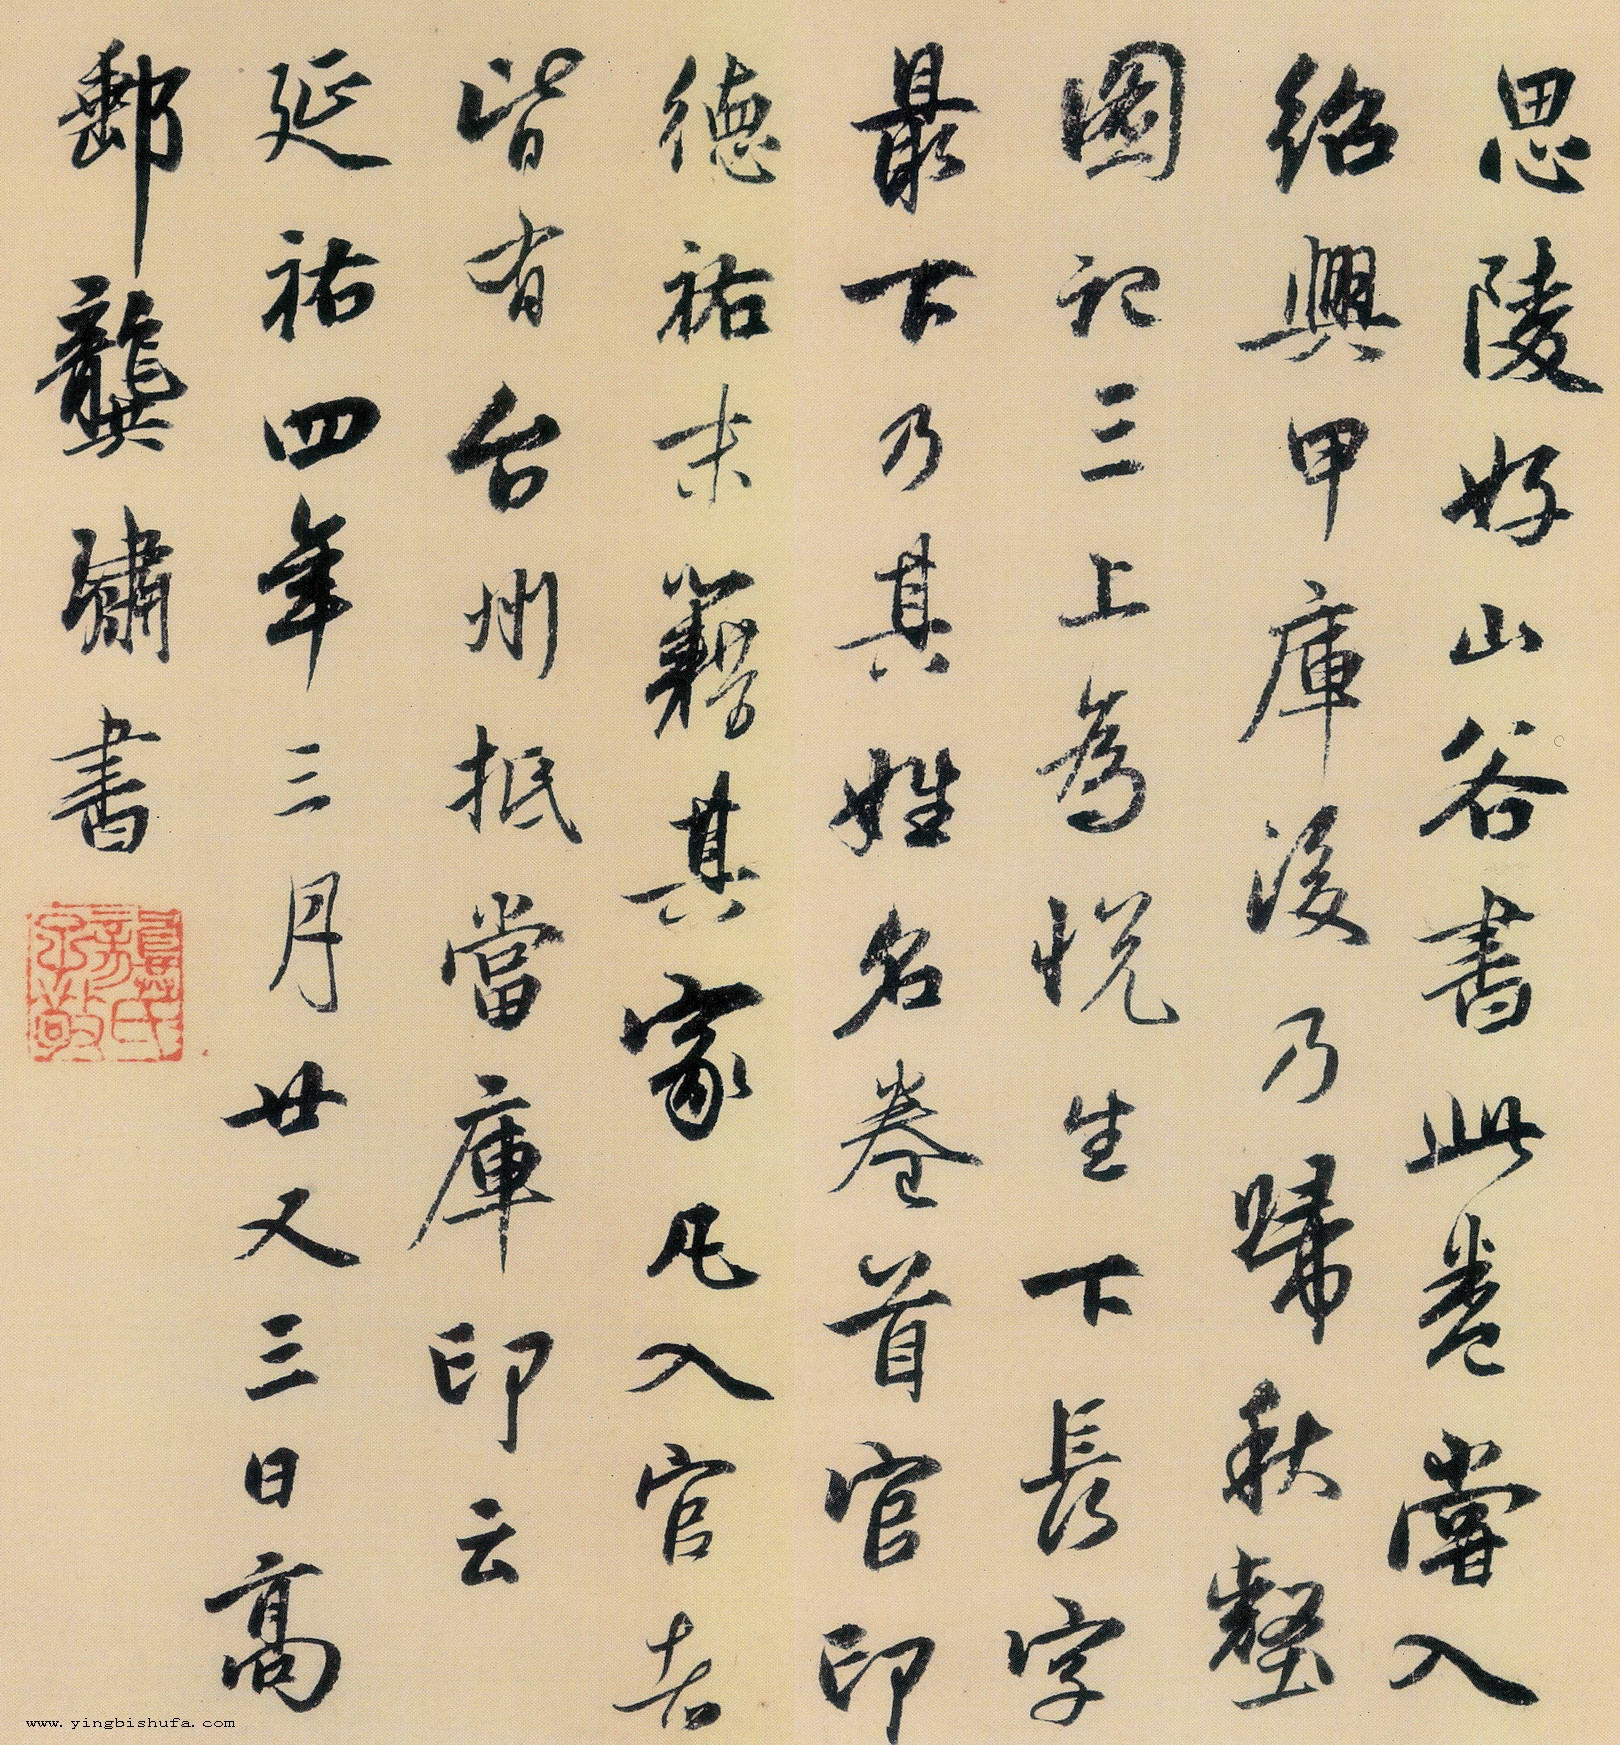 思陵好山谷書此卷嘗入
紹興甲庫後乃歸秋壑
圖記三上為悦生下長字
最下乃其姓名卷首官印
德祐末籍其家凡入官者
皆有台州抵當庫印云
延祐四年三月廿又三日高
郵龔璛書
www.yingbishufa.com